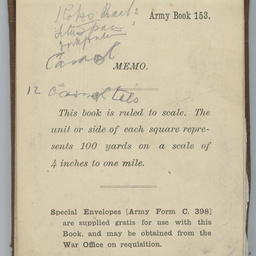 Army Book 153.
MEMO.
12
This book is ruled to scale. The
unit or side of each square repre-
sents 100 yards on a scale of
4 inches to one mile.
Special Envelopes [Army Form C. 398]
are supplied gratis for use with this
Book, and may be obtained from the
War Office on requisition.